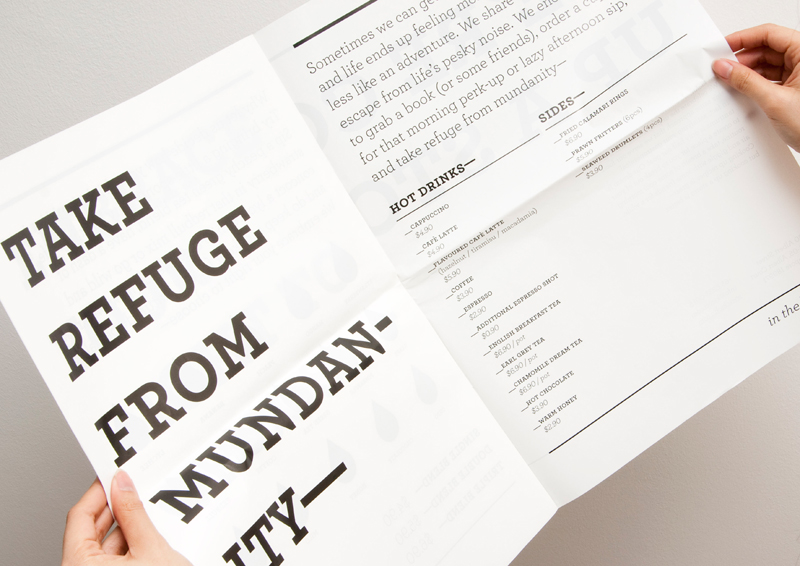 TAKE
REFUGE
FROM
MUNDAN-
ITY—
Sometimes we can get
and life ends up feeling mo
less like an adventure. We share
escape from life's pesky noise. We enc
to grab a book (or some friends), order a cup
for that morning perk-up or lazy afternoon sip,
and take refuge from mundanity—
HOT DRINKS—
—CAPPUCCINO
$4.90
—CAFÉ LATTE
$4.90
—FLAVOURED CAFÉ LATTE
(hazelnut / tiramisu / macadamia)
$5.90
—COFFEE
$3.90
—ESPRESSO
$2.90
—ADDITIONAL ESPRESSO SHOT
$0.90
—ENGLISH BREAKFAST TEA
$6.90 / pot
—EARL GREY TEA
$6.90 / pot
—CHAMOMILE DREAM TEA
$6.90 / pot
—HOT CHOCOLATE
$3.90
—WARM HONEY
$2.90
SIDES—
—FRIED CALAMARI RINGS
$6.90
—PRAWN FRITTERS (6pcs)
$5.90
—SEAWEED DRUMLETS (4pcs)
$3.90
in the